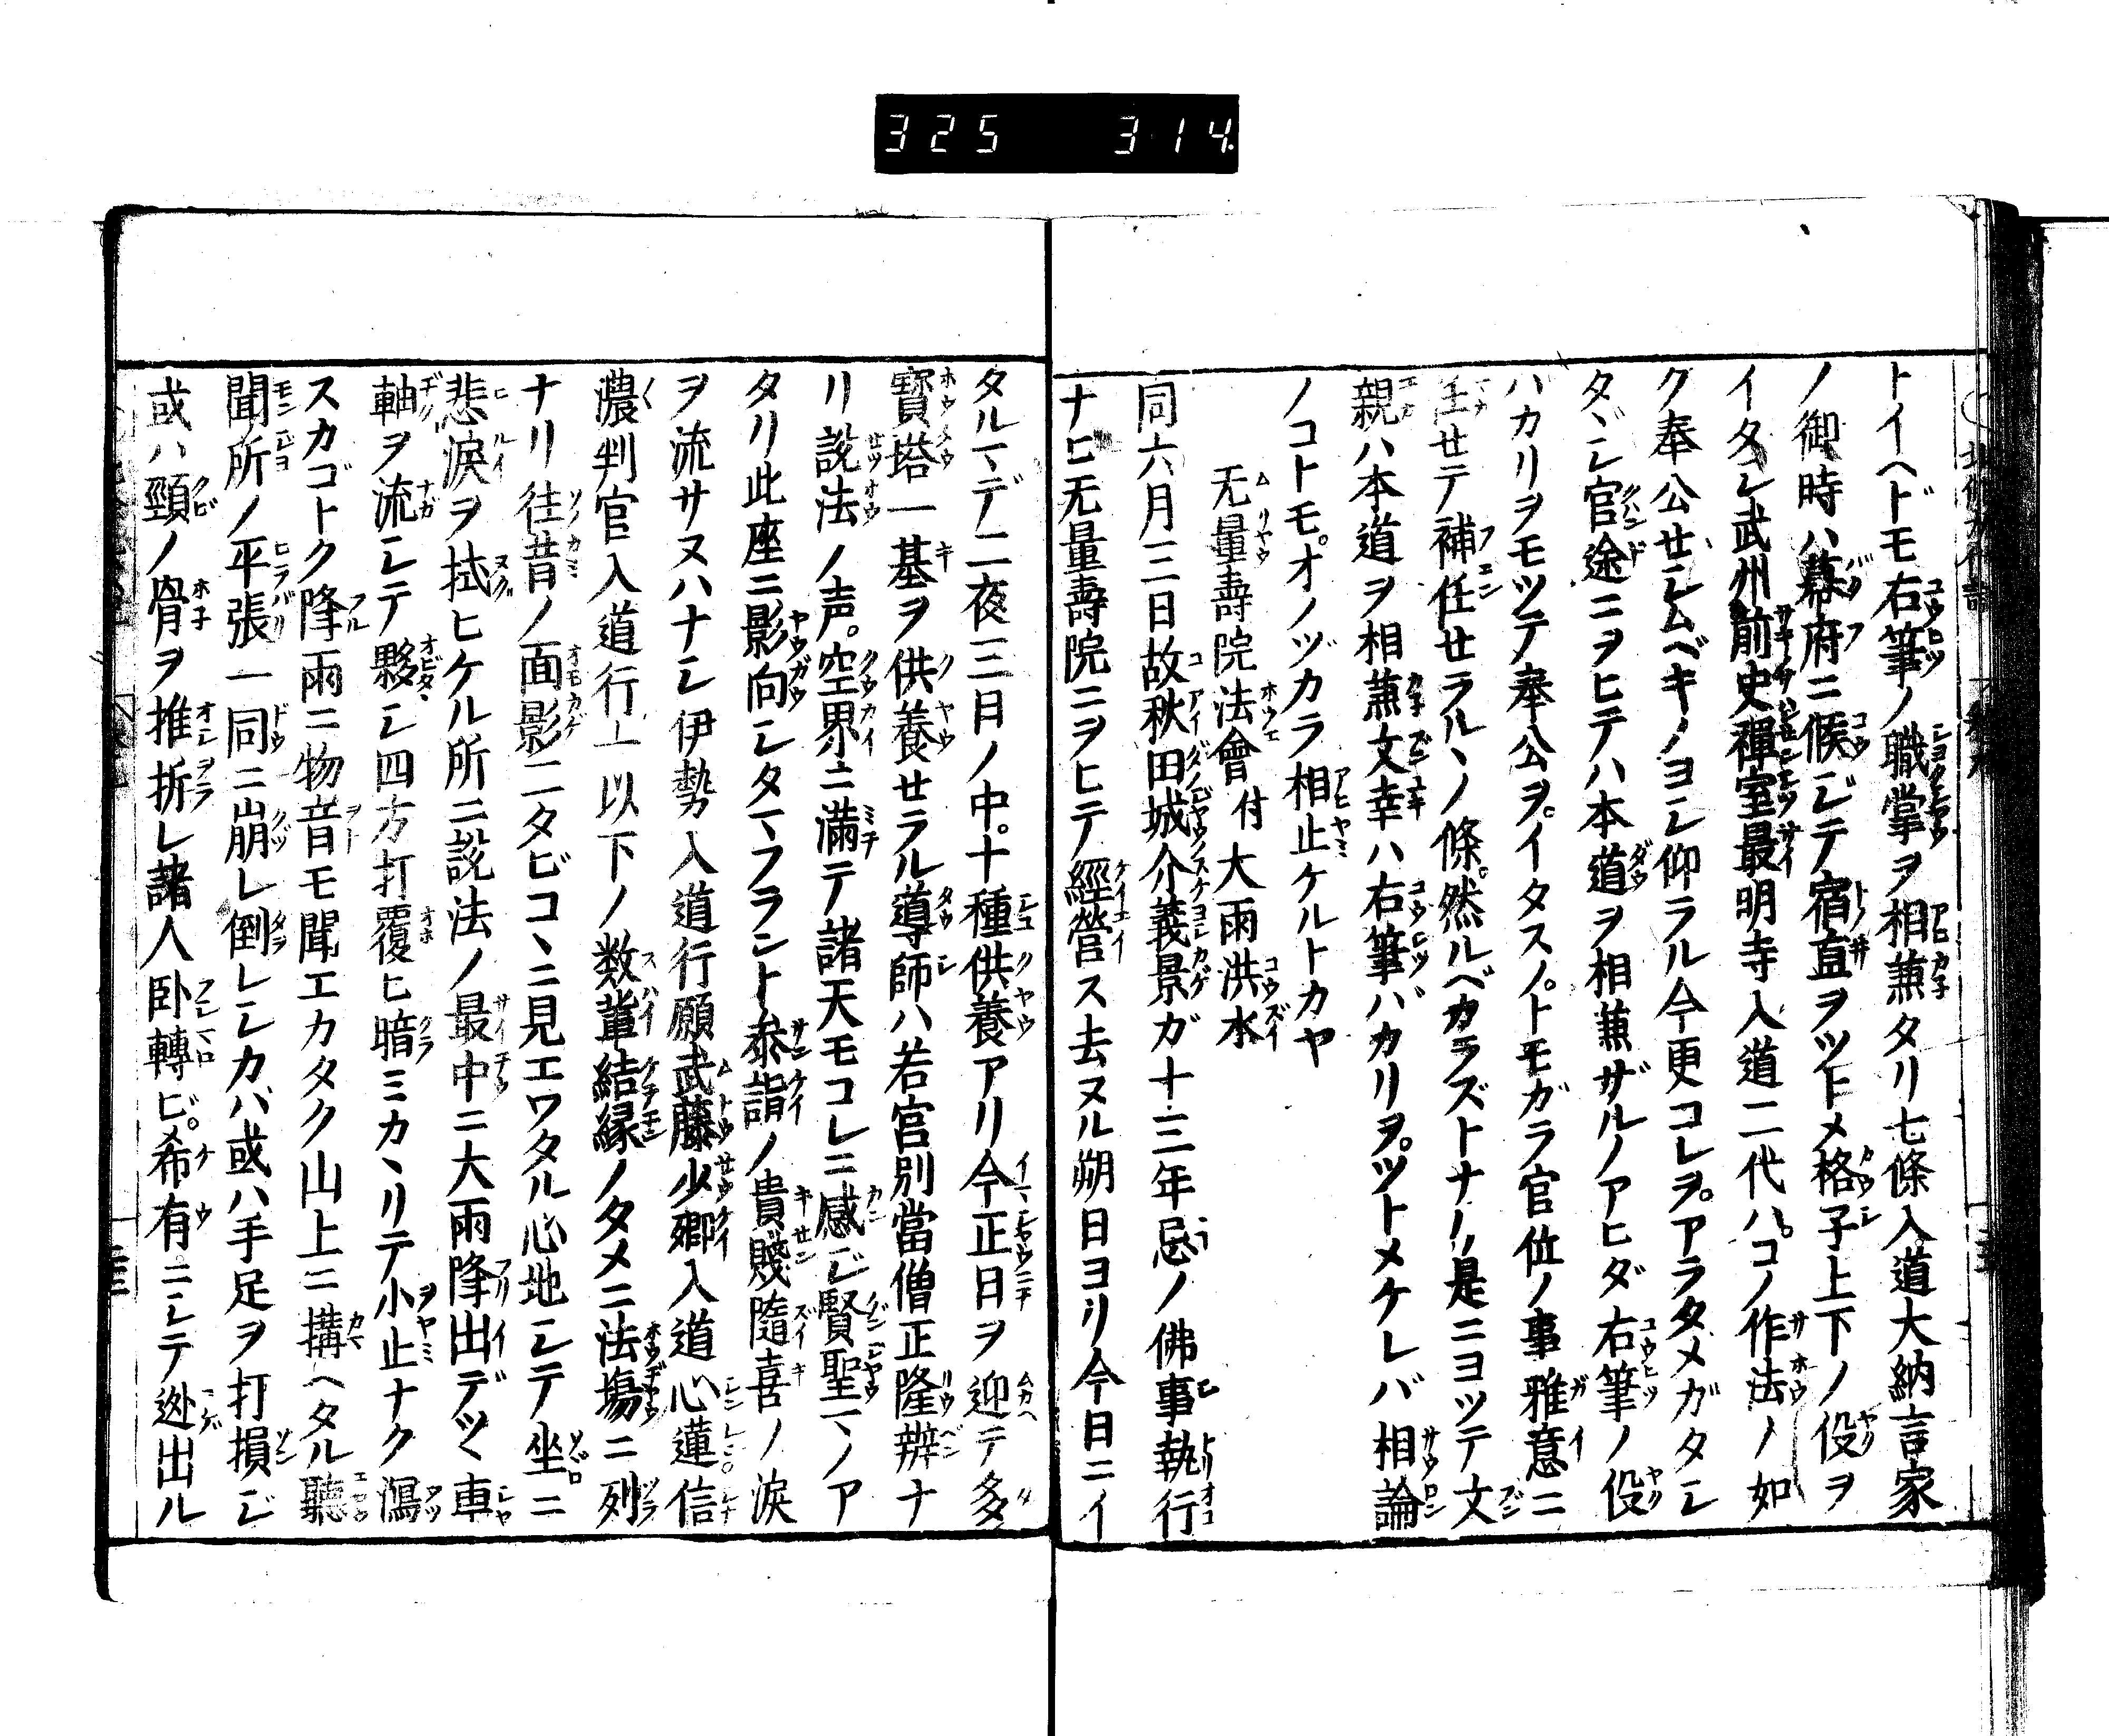 325 314
トイヘドモ右筆ノ職掌ヲ相兼タリ七條入道大納言家
ノ御時ハ幕府ニ候ジテ宿直ヲツトメ格子上下ノ役ヲ
イタシ武州前史禪室最明寺入道二代ハ。コノ作法ノ如
ク奉公セシムベキノヨシ仰ラル今更コレヲ。アラタメガタシ
タヾシ官途ニヲヒテハ本道ヲ相兼ザルノアヒダ右筆ノ役
ハカリヲモツテ奉公ヲ。イタスノ。トモガラ官位ノ事雅意ニ
任セテ補任セラルヽノ條。然ルベカラズトナリ是ニヨツテ文
親ハ本道ヲ相兼文幸ハ右筆バカリヲ。ツトメケレバ相論
ノコトモ。オノヅカラ相止ケルトカヤ
无量壽院法會付大雨洪水
同六月三日故秋田城介義景ガ十三年忌ノ佛事執行
ナヒ无量壽院ニヲヒテ經營ス去ヌル朔日ヨリ今日ニイ
タルマデ二夜三日ノ中。十種供養アリ今正日ヲ迎テ多
寳塔一基ヲ供養セラル導師ハ若宮別當僧正隆辨ナ
リ説法ノ声。空界ニ満テ諸天モコレニ感ジ賢聖マヽノア
タリ此座ニ影向シタマフラント叅詣ノ貴賤隨喜ノ涙
ヲ流サヌハナシ伊勢入道行願武藤少卿入道心蓮信
濃判官入道行一以下ノ数輩結縁ノタメニ法塲ニ列
ナリ徃昔ノ面影二タビコヽニ見エワタル心地シテ坐ニ
悲涙ヲ拭ヒケル所ニ説法ノ最中ニ大雨降出デツヽ車
軸ヲ流シテ夥シ四方打覆ヒ暗ミカヽリテ小止ナク瀉
スカゴトク降雨ニ物音モ聞エカタク山上ニ搆ヘタル聽
聞所ノ平張一同ニ崩レ倒レシカバ或ハ手足ヲ打損ジ
或ハ頸ノ骨ヲ推折レ諸人卧轉ビ。希有ニシテ迯出ル